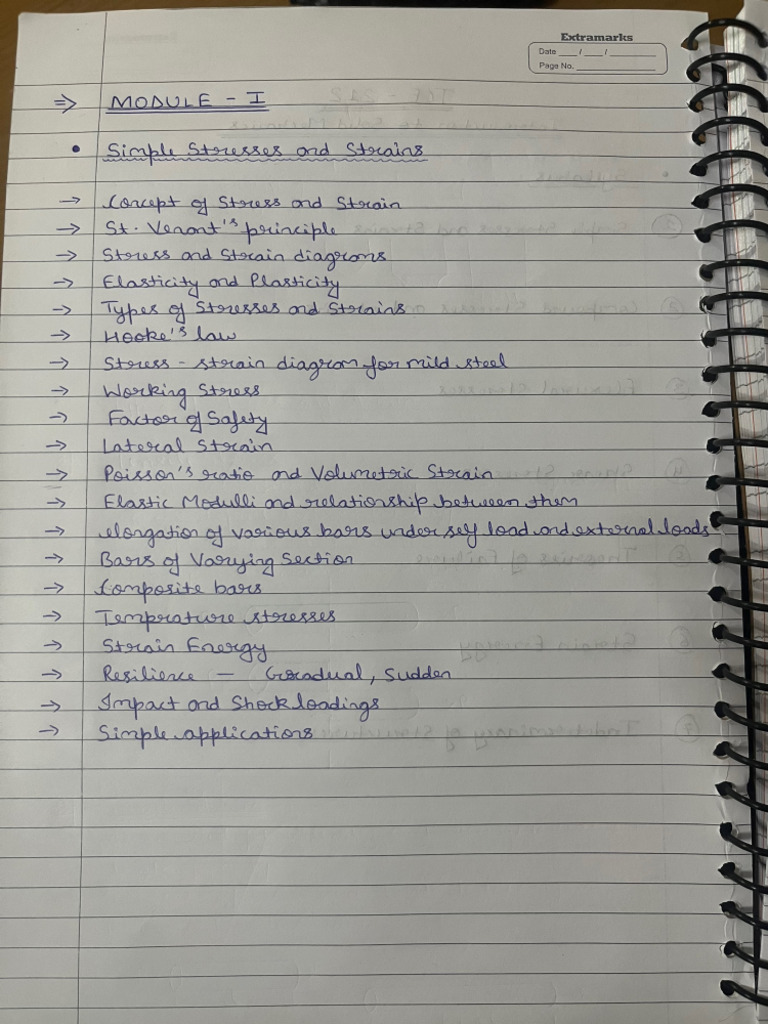 Extramarks
Date ___/___/______
Page No. ______
⇒ MODULE - I
• Simple Stresses and Strains
→ Concept of Stress and Strain
→ St. Venant's principle
→ Stress and Strain diagrams
→ Elasticity and Plasticity
→ Types of Stresses and Strains
→ Hooke's law
→ Stress - strain diagram for mild steel
→ Working Stress
→ Factor of Safety
→ Lateral Strain
→ Poisson's ratio and Volumetric Strain
→ Elastic Modulli and relationship between them
→ elongation of various bars under self load and external loads
→ Bars of Varying Section
→ Composite bars
→ Temprature stresses
→ Strain Energy
→ Resilience - Gradual, Sudden
→ Impact and Shock loadings
→ Simple applications